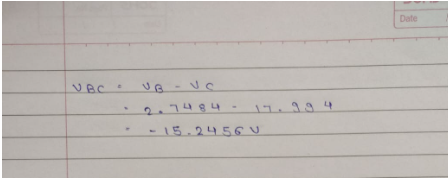 Date
VBC = VB - VC
= 2.7484 - 17.994
= -15.2456 V